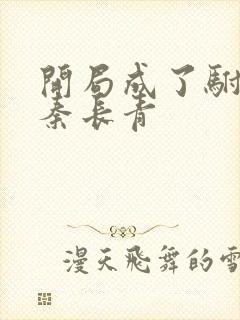 開局成了駙
秦長青
漫天飛舞的雪